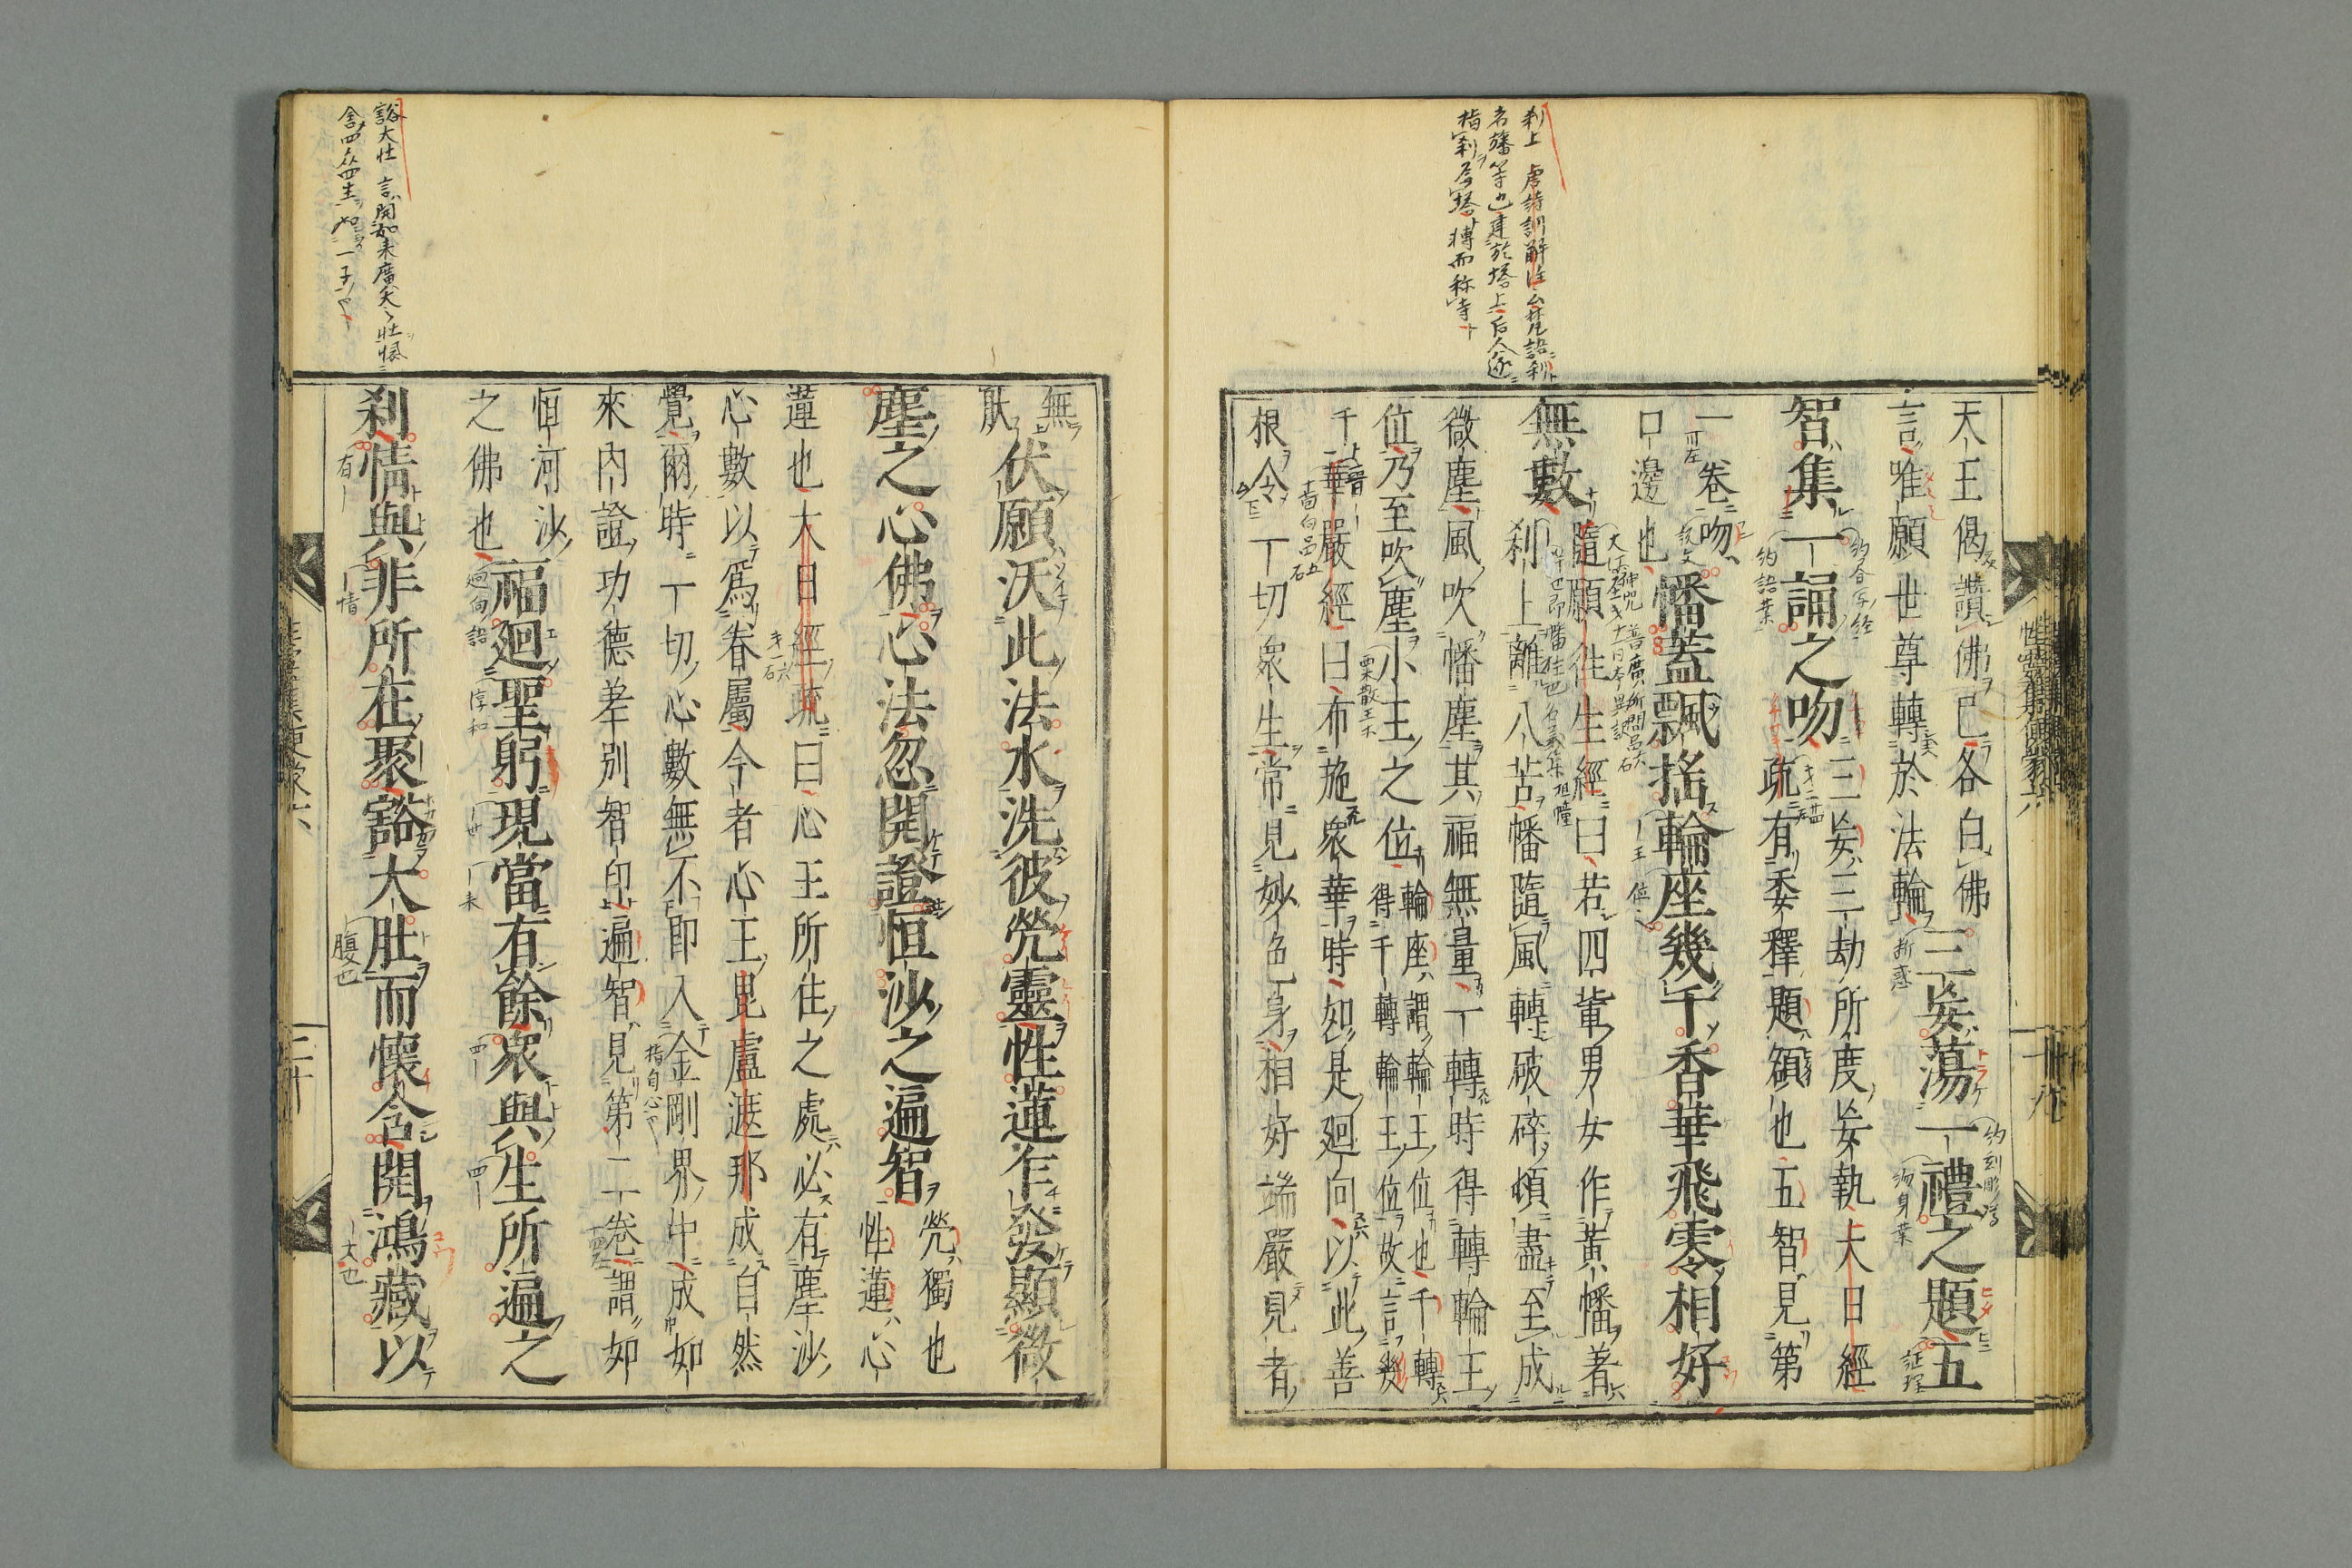 天王偈讚佛已各白佛三妄蕩一禮之題五
言唯願世尊轉於法輪
智集一誦之吻三妄三劫所度妄執大日經
疏有委釋題額也五智見第
一卷吻
口邊也幡蓋飄搖輪座幾千香華飛零相好
無數隨願往生經曰若四輩男女作黃幡著
刹上離八苦幡隨風轉破碎頓盡至成
微塵風吹幡塵其福無量一轉時得轉輪王
位乃至吹塵小王之位輪座謂輪王位也千轉
得千轉輪王位故言幾
千華嚴經曰布施眾華時如是廻向以此善
根令一切衆生常見妙色身相好端嚴見者
無
猒伏願沃此法水洗彼煢靈性蓮乍發顯微
塵之心佛心法忽開證恒沙之遍智煢獨也
性蓮心
蓮也大日經疏曰心王所住之處必有塵沙
心數以爲眷屬今者心王毘盧遮那成自然
覺爾時一切心數無不即入金剛界中成如
來內證功德差別智印遍智見第二卷謂如
恒河沙
之佛也福廻聖躬現當有餘衆與生所遍之
刹情與非所在聚豁大肚而懷含開鴻藏以
刹上 唐詩訓解注
名旛等也建於塔上后人遂
指刹爲塔轉而称寺
豁大壮 言開如来廣大
含四众四生如一子